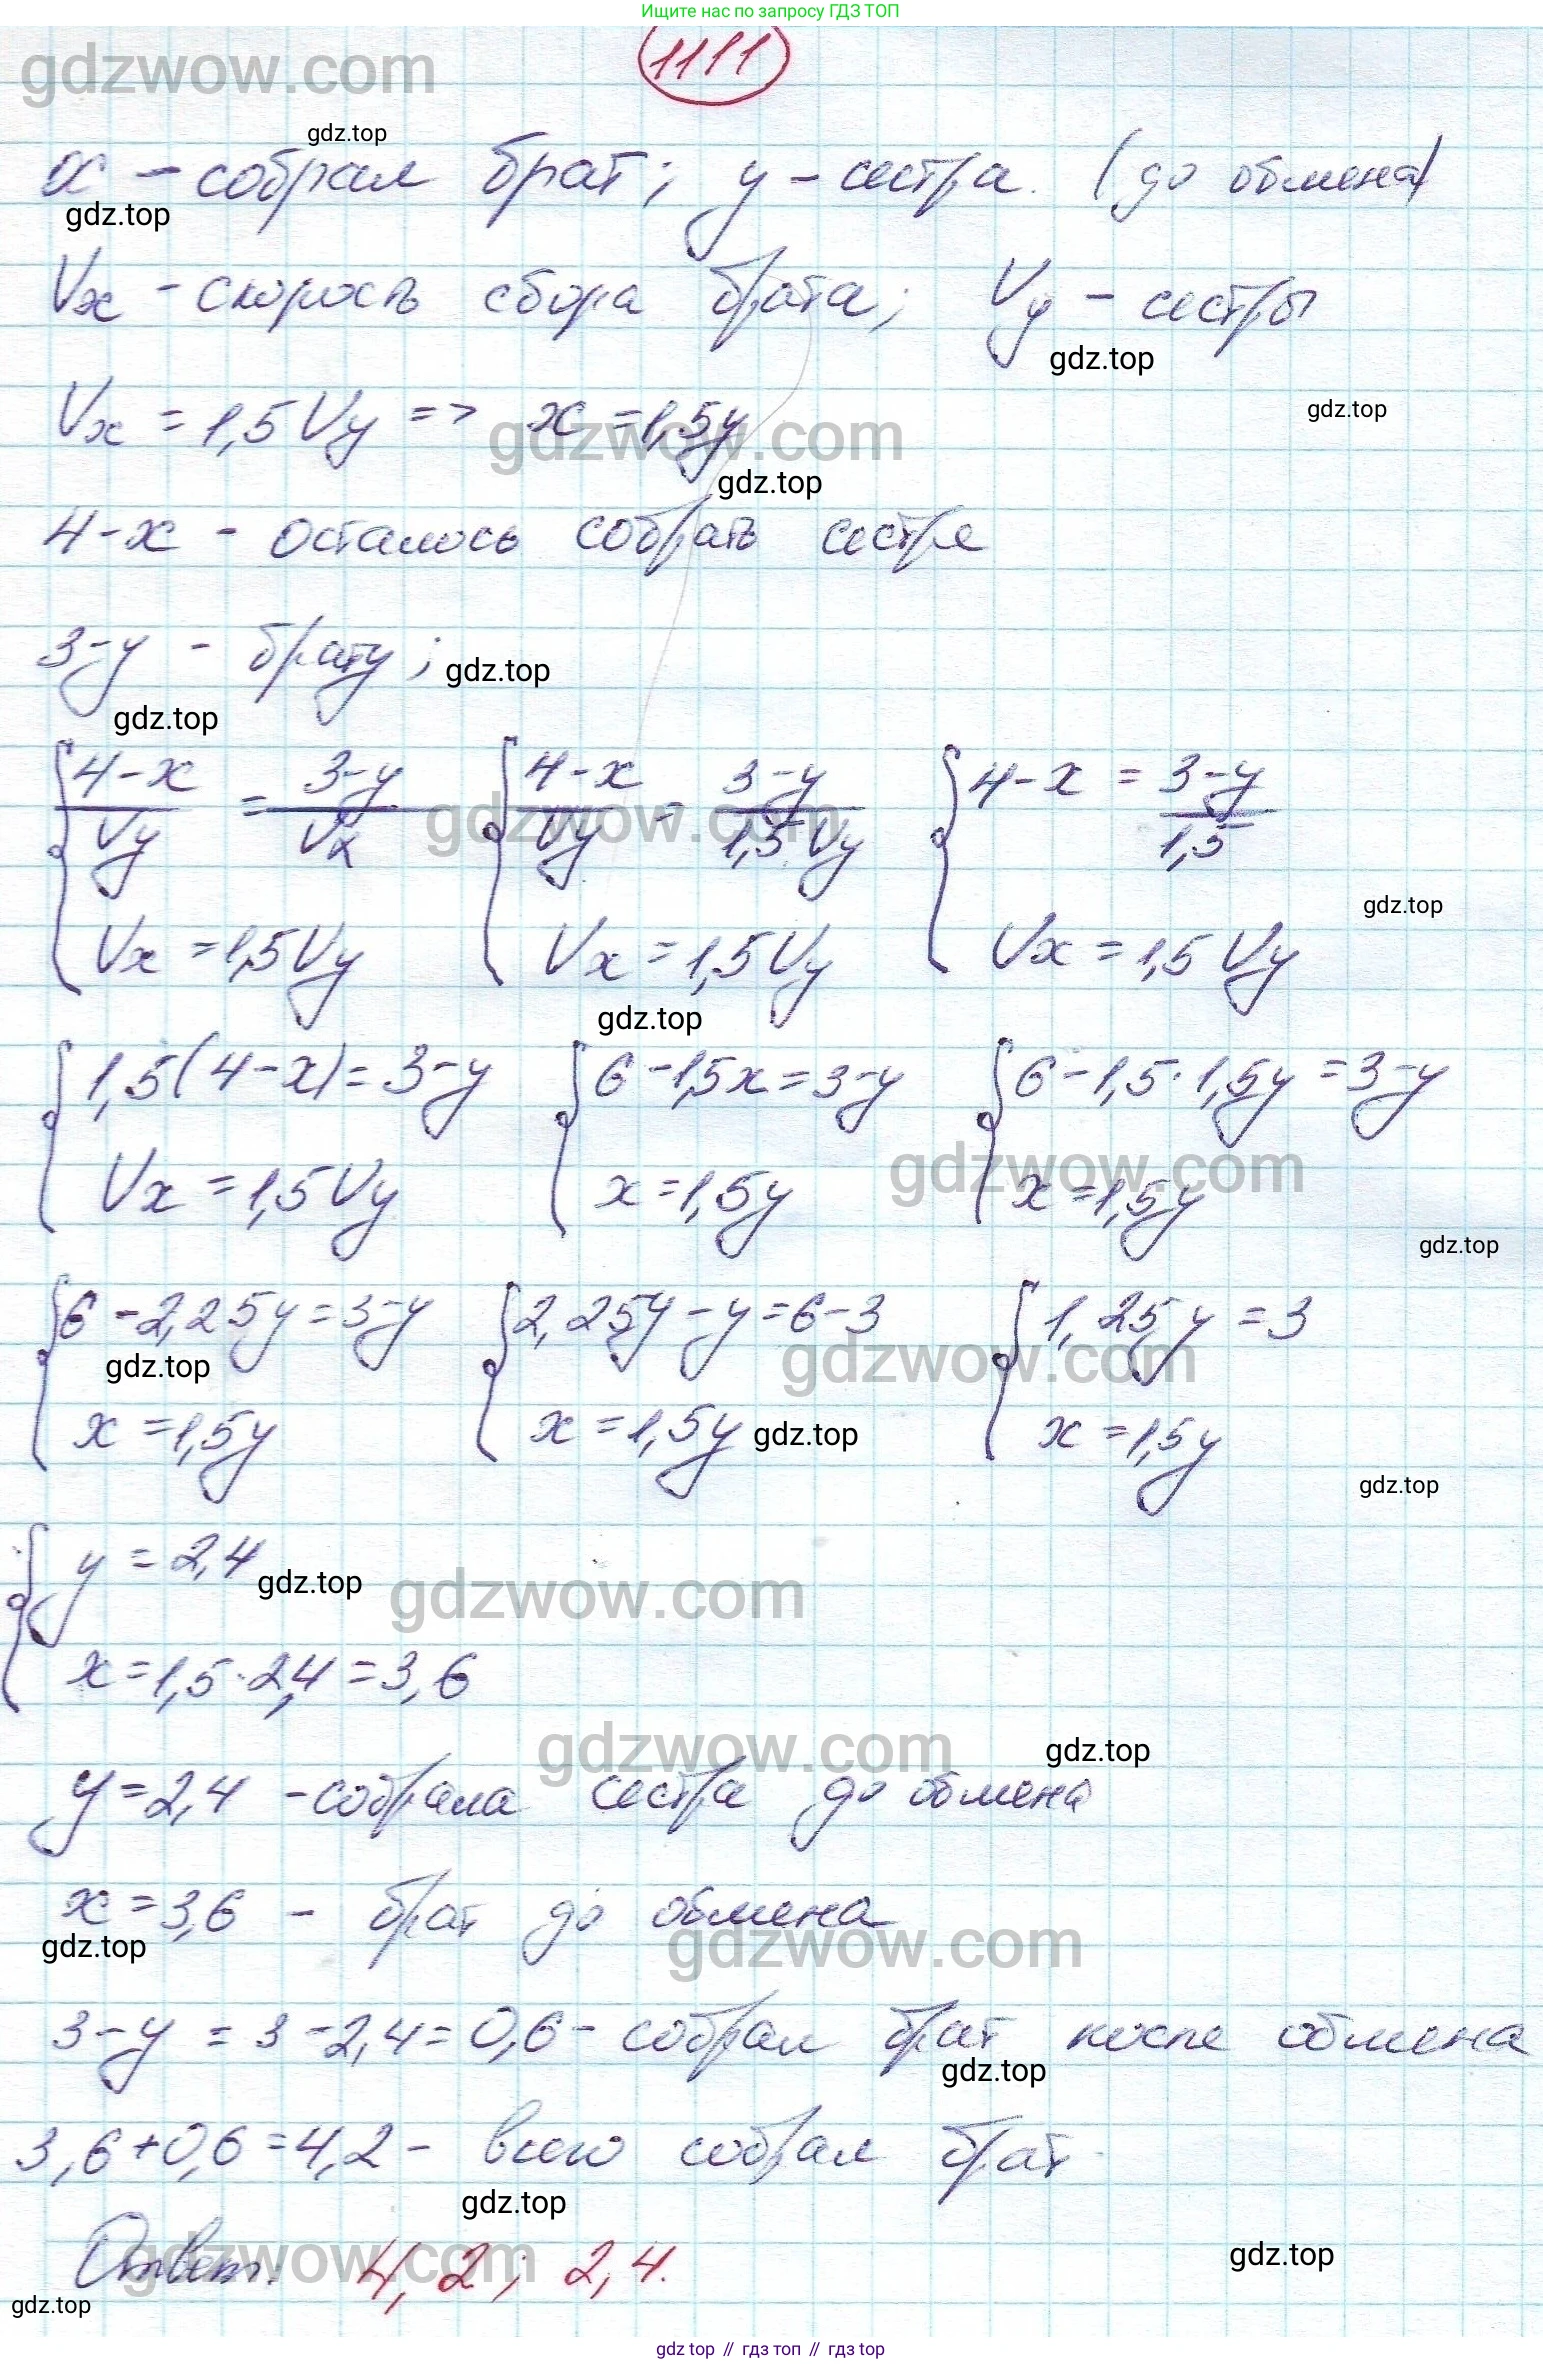 Ищите нас по запросу ГДЗ ТОП
gdzwow.com
1111
gdz.top
x - собрал брат; y - сестра. (до обмена)
gdz.top
Vx - скорость сбора брата; Vy - сестры
gdz.top
Vx = 1,5 Vy => x = 1,5y
gdz.top
gdzwow.com
gdz.top
4-x - осталось собрать сестре
3-y - брату;
gdz.top
gdz.top
{ (4-x)/Vy = (3-y)/Vx { (4-x)/Vy = (3-y)/1,5Vy { 4-x = (3-y)/1,5
gdzwow.com
gdz.top
Vx = 1,5Vy Vx = 1,5Vy Vx = 1,5 Vy
gdz.top
{ 1,5(4-x) = 3-y { 6-1,5x = 3-y { 6-1,5·1,5y = 3-y
gdzwow.com
Vx = 1,5Vy x = 1,5y x = 1,5y
gdz.top
{ 6-2,25y = 3-y { 2,25y-y = 6-3 { 1,25y = 3
gdz.top
gdzwow.com
x = 1,5y x = 1,5y x = 1,5y
gdz.top
gdz.top
{ y = 2,4
gdz.top
gdzwow.com
x = 1,5·2,4 = 3,6
gdzwow.com
gdz.top
y = 2,4 - собрала сестра до обмена
x = 3,6 - брат до обмена
gdz.top
gdzwow.com
3-y = 3-2,4 = 0,6 - собрал брат после обмена
gdz.top
3,6+0,6 = 4,2 - всего собрал брат
gdz.top
Ответ: 4,2; 2,4.
gdzwow.com
gdz.top
gdz.top
gdz top // гдз топ // gdz top